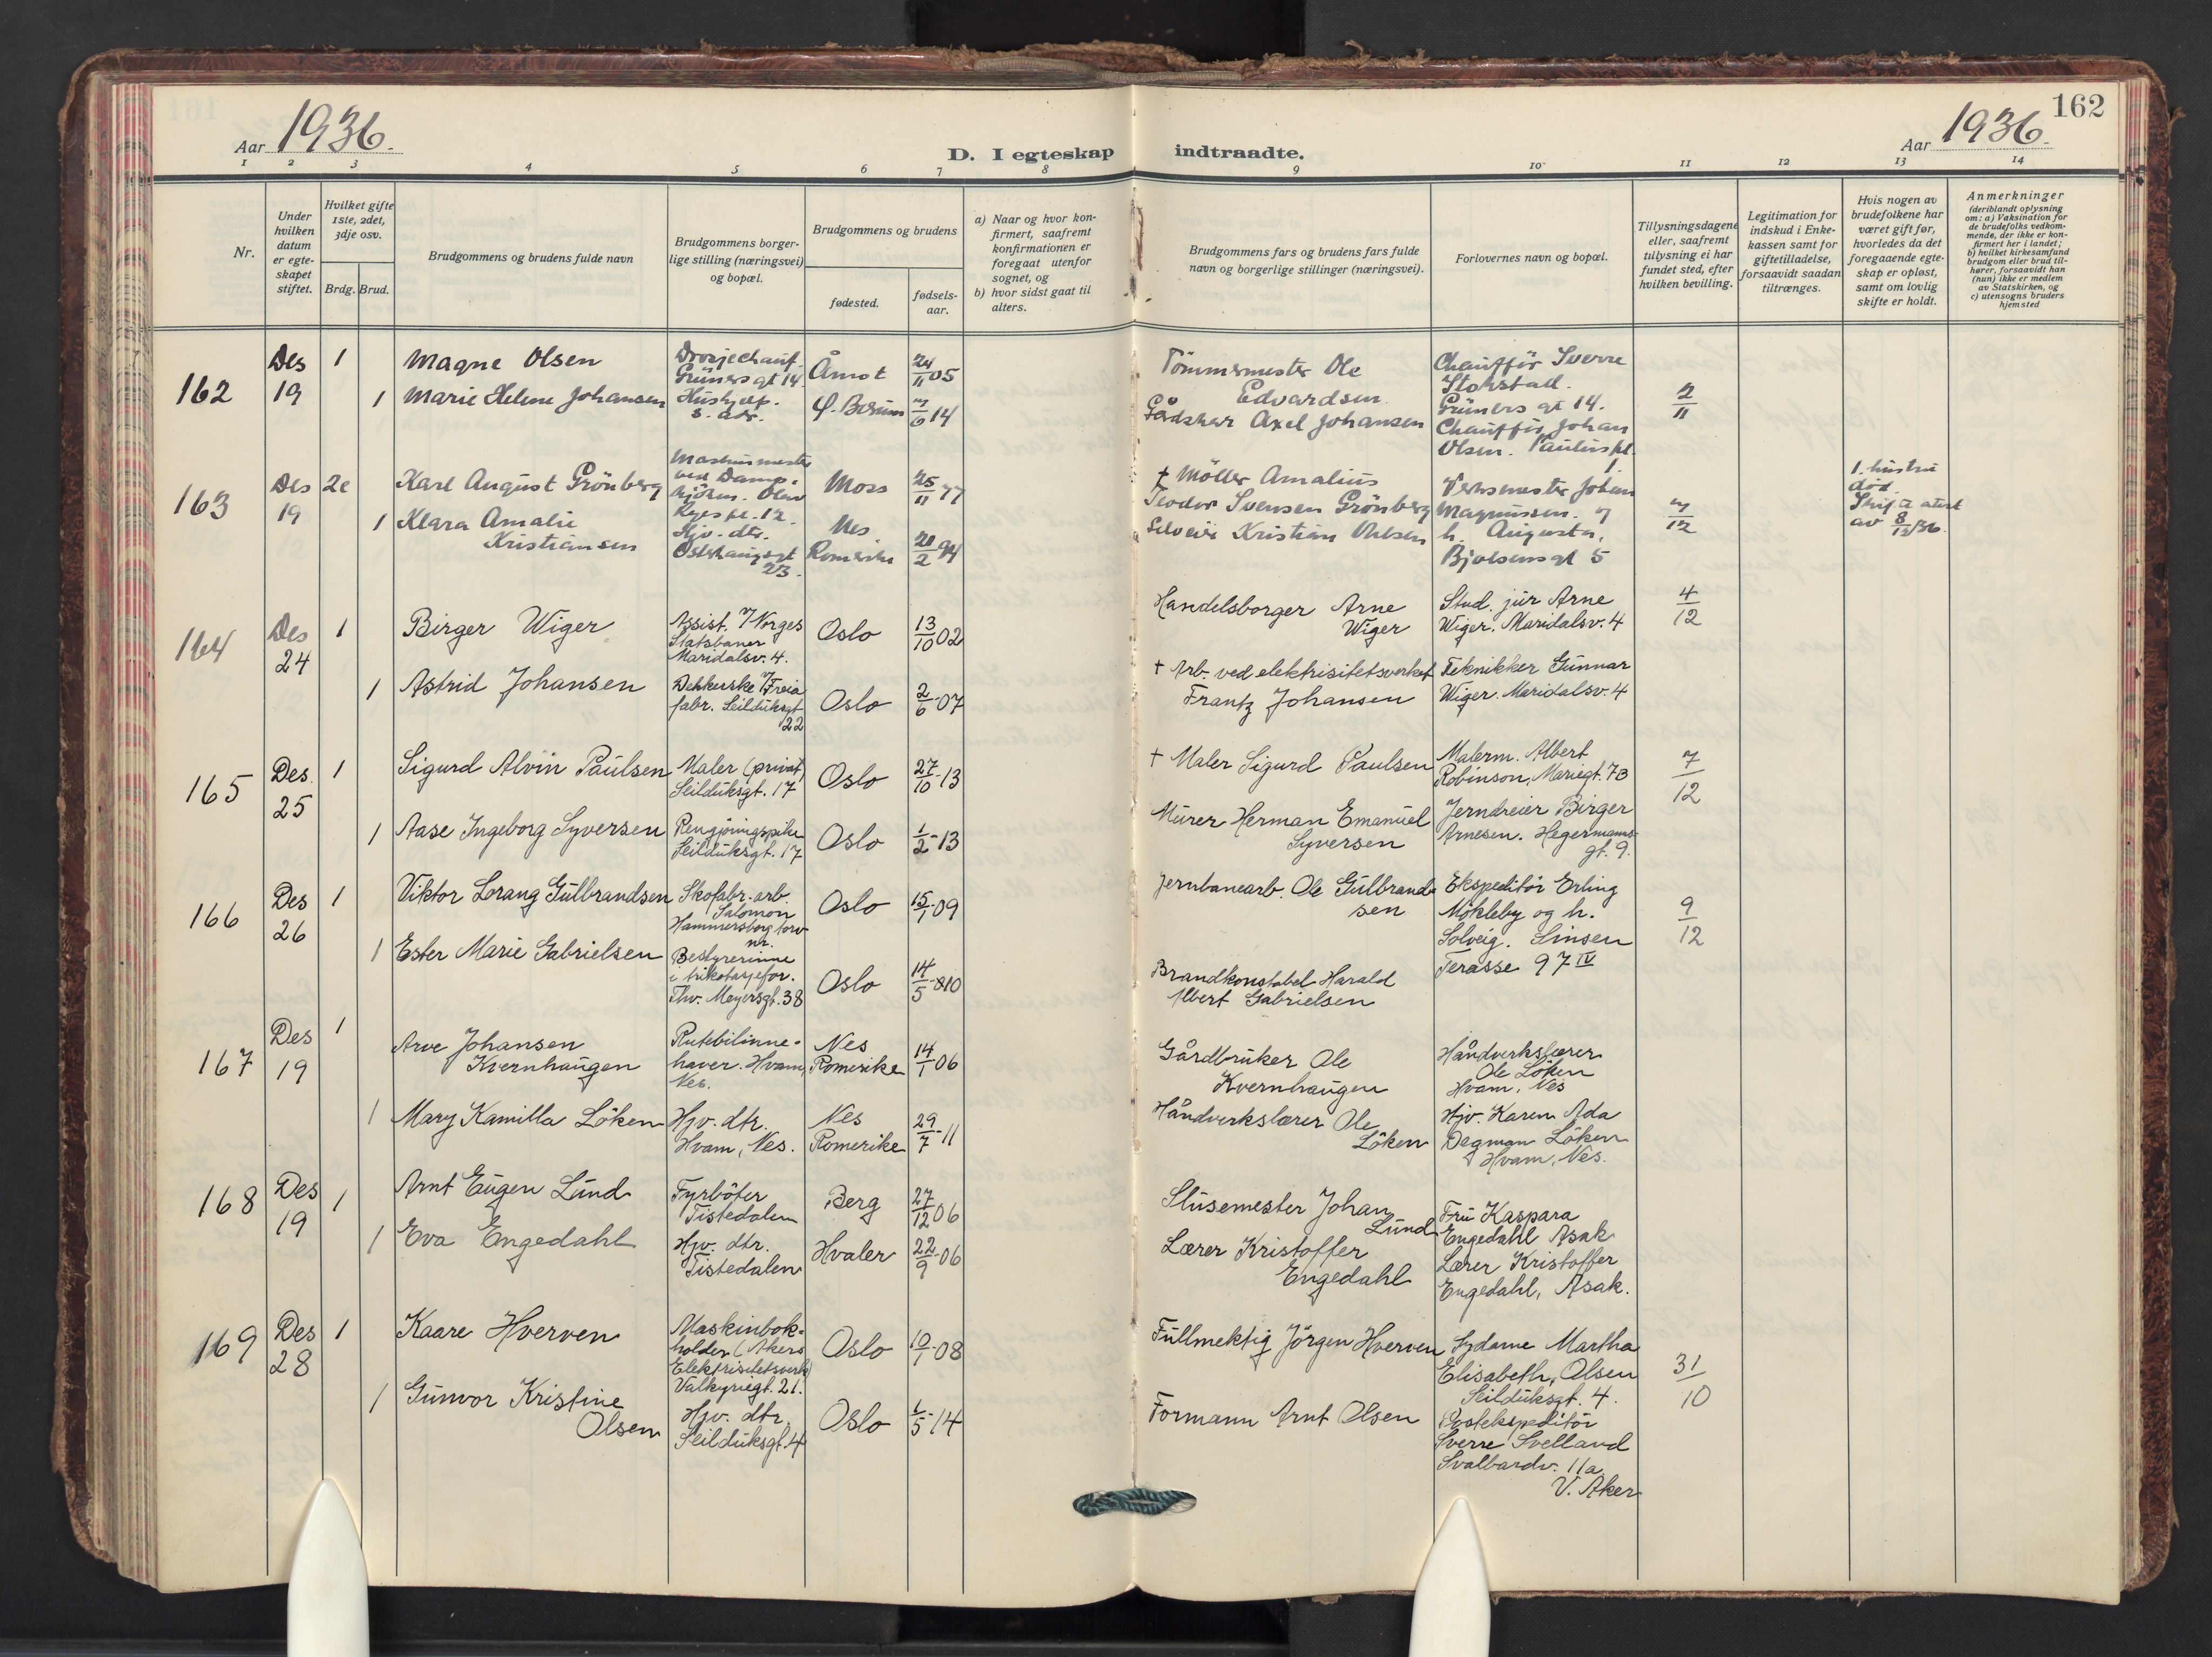 161
Aar 1936.
D. I egteskap indtraadte.
Aar 1936.
162
1 2 3 4 5 6 7 8 9 10 11 12 13 14
Nr.
Under
hvilken
datum
er egte-
skapet
stiftet.
Hvilket gifte
1ste, 2det,
3dje osv.
Brdg. Brud.
Brudgommens og brudens fulde navn
Brudgommens borger-
lige stilling (næringsvei)
og bopæl.
Brudgommens og brudens
fødested.
fødsels-
aar.
a) Naar og hvor kon-
firmert, saafremt
konfirmationen er
foregaat utenfor
sognet, og
b) hvor sidst gaat til
alters.
Brudgommens fars og brudens fars fulde
navn og borgerlige stillinger (næringsvei).
Forlovernes navn og bopæl.
Tillysningsdagene
eller, saafremt
tillysning ei har
fundet sted, efter
hvilken bevilling.
Legitimation for
indskud i Enke-
kassen samt for
giftetilladelse,
forsaavidt saadan
tiltrænges.
Hvis nogen av
brudefolkene har
været gift før,
hvorledes da det
foregaaende egte-
skap er opløst,
samt om lovlig
skifte er holdt.
Anmerkninger
(deriblandt oplysning
om: a) Vaksination for
de brudefolks vedkom-
mende, der ikke er kon-
firmert her i landet;
b) hvilket kirkesamfund
brudgom eller brud til-
hører, forsaavidt han
(hun) ikke er medlem
av Statskirken, og
c) utensogns bruders
hjemsted
162
Des
19
1
Magne Olsen
Drosjechauf.
Grünersgt 14
Åmot
24/11 05
1
Marie Helene Johansen
Hushjelp.
s. adr.
Ø. Bærum
7/6 14
Tömmermester Ole
Edvardsen
Gårdsker Axel Johansen
Chaufför Sverre
Stokstad.
Grüners gt 14.
Chaufför Johan
Olsen. Pauluspl.
1.
2/11
163
Des
19
2e
Karl August Grönberg
Maskinmester
ved Damp-
kjökn. Olav
Ryespl. 12.
Moss
25/11 77
1
Klara Amalie
Kristiansen
Hjv. dtr.
Östehaugsgt
23.
Nes
Romerike
20/2 94
† Möller Amalius
Teodor Svensen Grönberg
Selveier Kristian Ohlsen
Verksmester Johan
Magnussen. og
h. Augusta,
Bjølsensgt 5
7/12
1. hustru
död.
Skifteattest
av 8/12 36.
164
Des
24
1
Birger Wiger
Assist. v/Norges
Statsbaner
Maridalsv. 4.
Oslo
13/10 02
1
Astrid Johansen
Dekkerske v/Freia
fabr. Seilduksgt
22
Oslo
2/6 07
Handelsborger Arne
Wiger
† Arb. ved elektrisitetsverket
Frantz Johansen
Stud. jur Arne
Wiger. Maridalsv. 4
Teknikker Gunnar
Wiger. Maridalsv. 4
4/12
165
Des.
25
1
Sigurd Alvin Paulsen
Maler (privat)
Seilduksgt. 17
Oslo
27/10-13
1
Aase Ingeborg Syversen
Rengjöringspike
Seilduksgt. 17
Oslo
1/2-13
† Maler Sigurd Paulsen
Murer Herman Emanuel
Syversen
Malerm. Albert
Robinson, Mariegt. 7B
Jerndreier Birger
Arnesen. Hegermanns-
gt. 9.
7/12
166
Des
26
1
Viktor Lorang Gulbrandsen
Skofabr. arb.
Salomon
Hammersborg torv
nr.
Oslo
15/1-09
1
Ester Marie Gabrielsen
Bestyrerinne
i trikotasjefor.
Thv. Meyersgt. 38
Oslo
14/5-10
Jernbanearb. Ole Gulbrand-
sen
Brandkonstabel Harald
Albert Gabrielsen
Ekspeditör Erling
Mökleby og h.
Solveig. Sinsen
Terasse 97 IV
9/12
167
Des
19
1
Arve Johansen
Kvernhaugen
Rutebilinne-
haver. Hvam,
Nes.
Nes
Romerike
14/1 06
1
Mary Kamilla Löken
Hjv. dtr.
Hvam, Nes.
Nes
Romerike
29/7-11
Gårdbruker Ole
Kvernhaugen
Håndverkslærer Ole
Löken
Håndverkslærer
Ole Löken
Hvam, Nes
Hjv. Karen Ada
Dagman Löken
Hvam, Nes.
168
Des
19
1
Arnt Eugen Lund
Fyrböter
Tistedalen
Berg
27/12 06
1
Eva Engedahl
Hjv. dtr.
Tistedalen
Hvaler
22/9-06
Slusemester Johan
Lund
Lærer Kristoffer
Engedahl
Fru Kaspara
Engedahl Asak
Lærer Kristoffer
Engedahl, Asak.
169
Des
28
1
Kaare Hverven
Maskinbok-
holder (Akers
Elektrisitetsverk)
Valkyriegt. 21.
Oslo
10/1-08
1
Gunvor Kristine
Olsen
Hjv. dtr.
Seilduksgt. 4
Oslo
1/5-14
Fullmektig Jörgen Hverven
Formann Arnt Olsen
Sydame Martha
Elisabeth Olsen
Seilduksgt. 4.
Postekspeditör
Sverre Svelland
Svalbardv. 11a
V. Aker
31/10